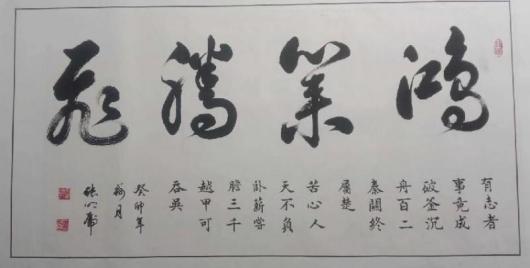 鸿業腾飛
有志者
事竟成
破釜沉
舟百二
秦關終
屬楚
苦心人
天不負
卧薪嘗
膽三千
越甲可
吞吳
癸卯年